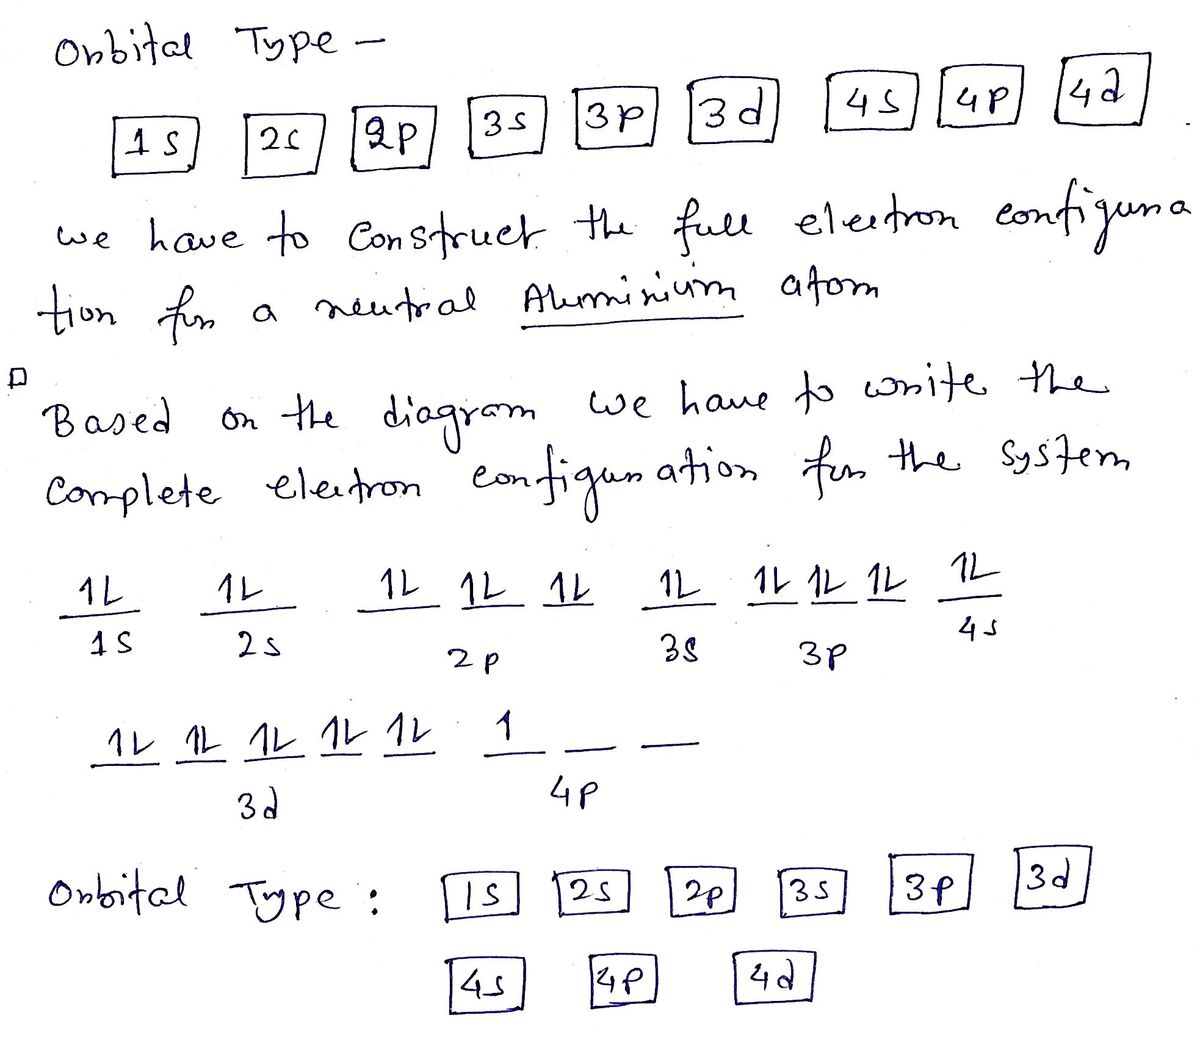 Orbital Type -
1s 2s 2p 3s 3p 3d 4s 4p 4d
we have to Construct the full electron configura
tion for a neutral Aluminium atom
Based on the diagram we have to write the
Complete electron configuration for the system
1L 1L 1L 1L 1L 1L 1L 1L 1L 1L
1s 2s 2p 3s 3p 4s
1L 1L 1L 1L 1L 1
3d 4p
Orbital Type : 1s 2s 2p 3s 3p 3d
4s 4p 4d